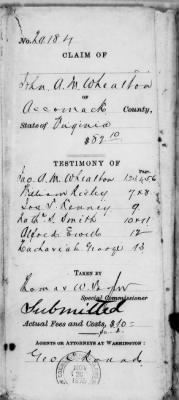 No. 20184
CLAIM OF
John A. M. Whealton
OF
Accomack County,
State of Virginia
$82.10
TESTIMONY OF
Page.
Jno. A. M. Whealton 1 2 3 4 5 6
William Risley 7 & 8
Jos. T. Kenney 9
Loth. S. Smith 10 & 11
Alfred 12
Zachariah George 13
TAKEN BY
Thomas W.
Special Commissioner
Submitted
Actual Fees and Costs, $10
AGENTS OR ATTORNEYS AT WASHINGTON:
Geo. C.
NOV